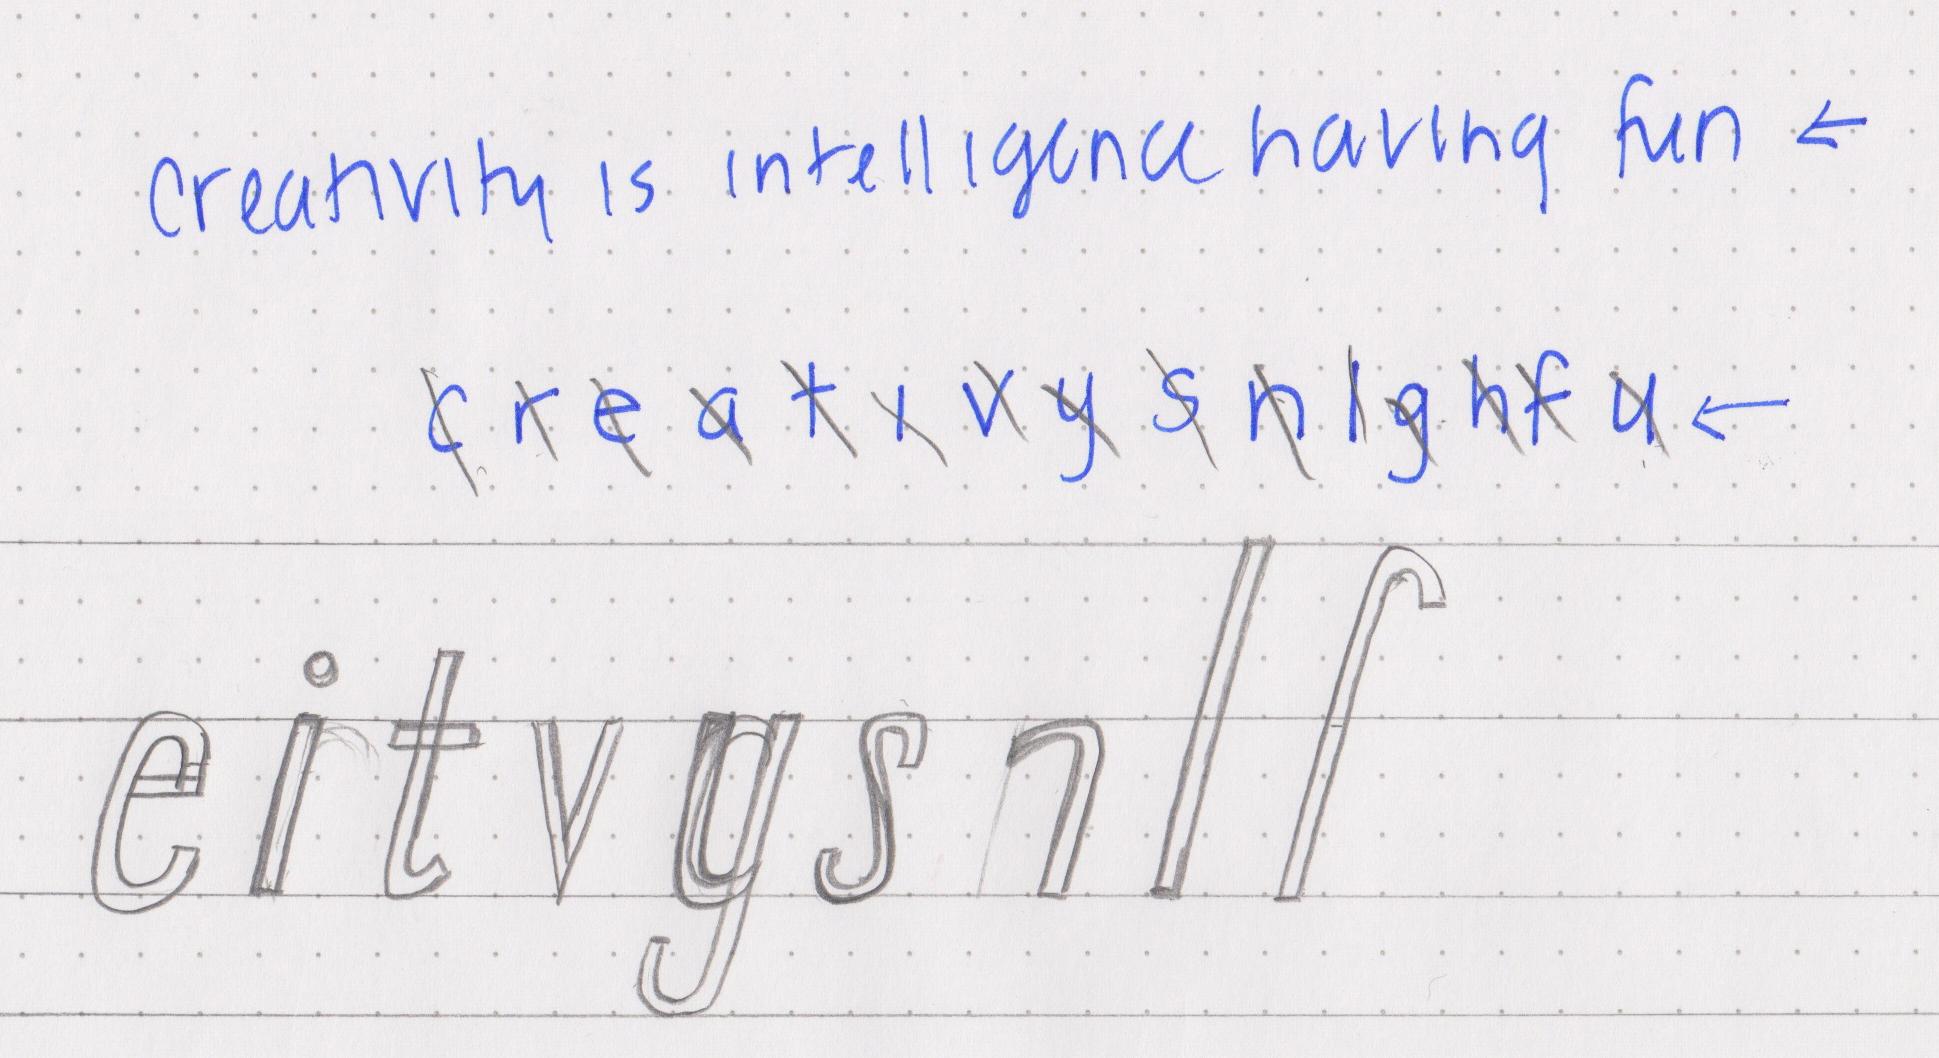 creativity is intelligence having fun ←
c r e a t i v y s n l g h f u ←
e i t v y s n l f